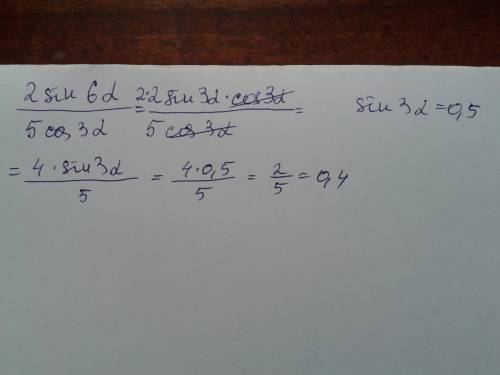 2 sin 6α / 5 cos 3α = 2·2 sin 3α · cos 3α / 5 cos 3α = sin 3α = 0,5
= 4 · sin 3α / 5 = 4 · 0,5 / 5 = 2 / 5 = 0,4